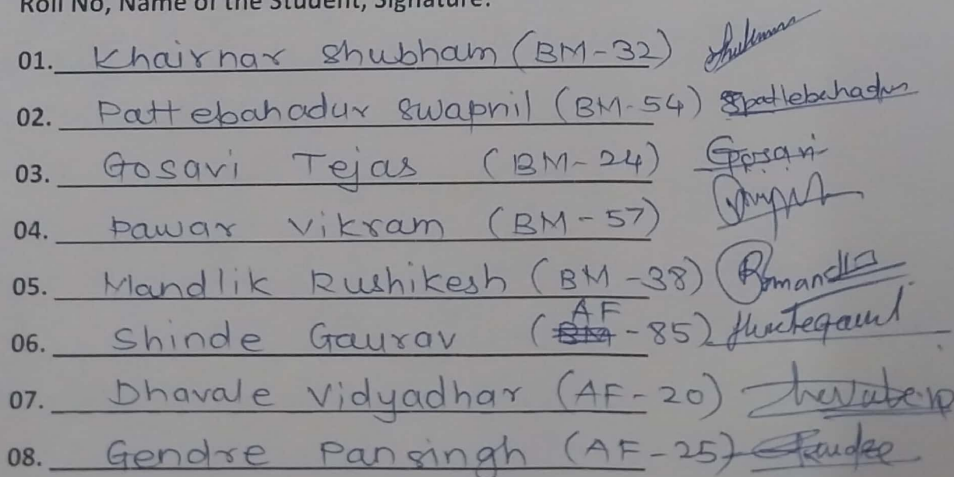 Roll No, Name of the Student, Signature:
01. Khairnar Shubham (BM-32)
02. Pattebahadur Swapnil (BM-54) Spattebahadur
03. Gosavi Tejas (BM-24) Gosavi
04. Pawar Vikram (BM-57)
05. Mandlik Rushikesh (BM-38) Rmandlik
06. Shinde Gaurav (AF-85)
07. Dhavale Vidyadhar (AF-20)
08. Gendre Pansingh (AF-25)